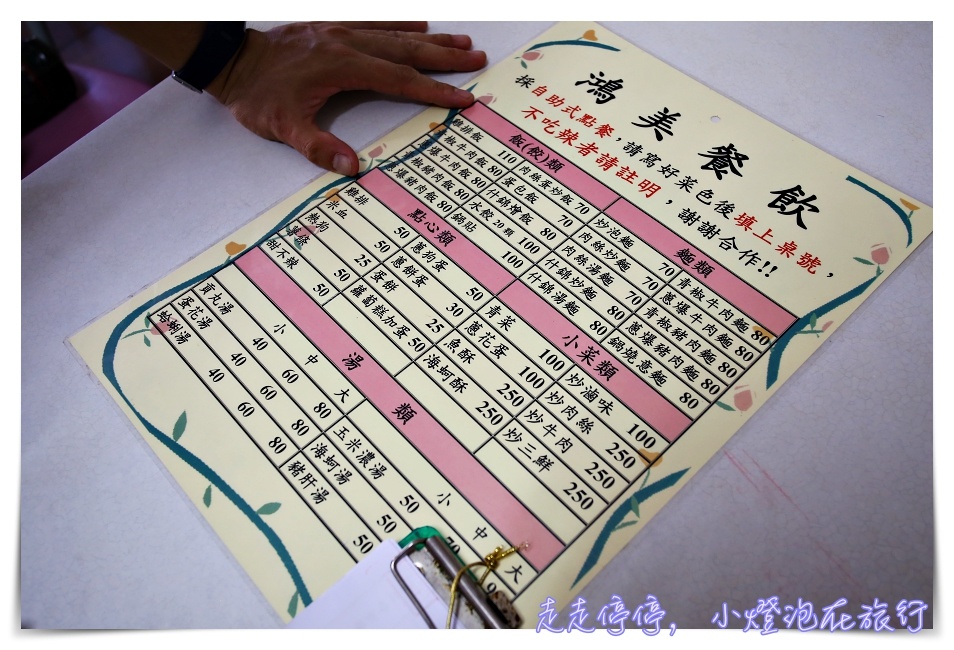 鴻美餐飲
採自助式點餐，請寫好菜色後填上桌號，
不吃辣者請註明，謝謝合作!!
飯(餃)類
麵類
雞排飯 110 肉絲蛋炒飯 70 炒泡麵 70 青椒牛肉麵 80
青椒牛肉飯 80 蛋包飯 70 肉絲炒麵 70 蔥爆牛肉麵 80
蔥爆牛肉飯 80 什錦燴飯 80 肉絲湯麵 70 青椒豬肉麵 80
青椒豬肉飯 80 水餃20顆 100 什錦炒麵 80 蔥爆豬肉麵 80
蔥爆豬肉飯 80 鍋貼 100 什錦湯麵 80 鍋燒意麵 80
點心類
小菜類
雞排 50 蔥狗蛋 50 青菜 100 炒滷味 100
米血 25 蔥餅蛋 30 蔥花蛋 100 炒肉絲 250
熱狗 25 蛋餅 25 魚酥 250 炒牛肉 250
薯條 50 蘿蔔糕加蛋 50 海蚵酥 250 炒三鮮 250
甜不辣 50
湯類
小 中 大 小 中 大
貢丸湯 40 60 80 玉米濃湯 50 70
蛋花湯 40 60 80 海蚵湯 50
蛤蜊湯 40 60 80 豬肝湯 50
走走停停，小燈泡在旅行